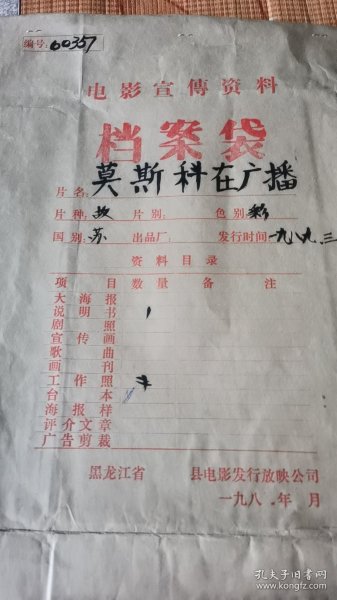 编号:60357
电影宣傅资料
档案袋
片名:莫斯科在广播
片种:故 片别: 色别:彩
国别:苏 出品厂: 发行时间:一九八九.三
资料目录
项目 数量 备注
大海报
说明书 1
剧照
宣传画
歌曲
画刊
工作照
台本
海报样
评介文章
广告剪裁
黑龙江省 县电影发行放映公司
一九八.年 月
孔夫子旧书网
www.kongfz.com